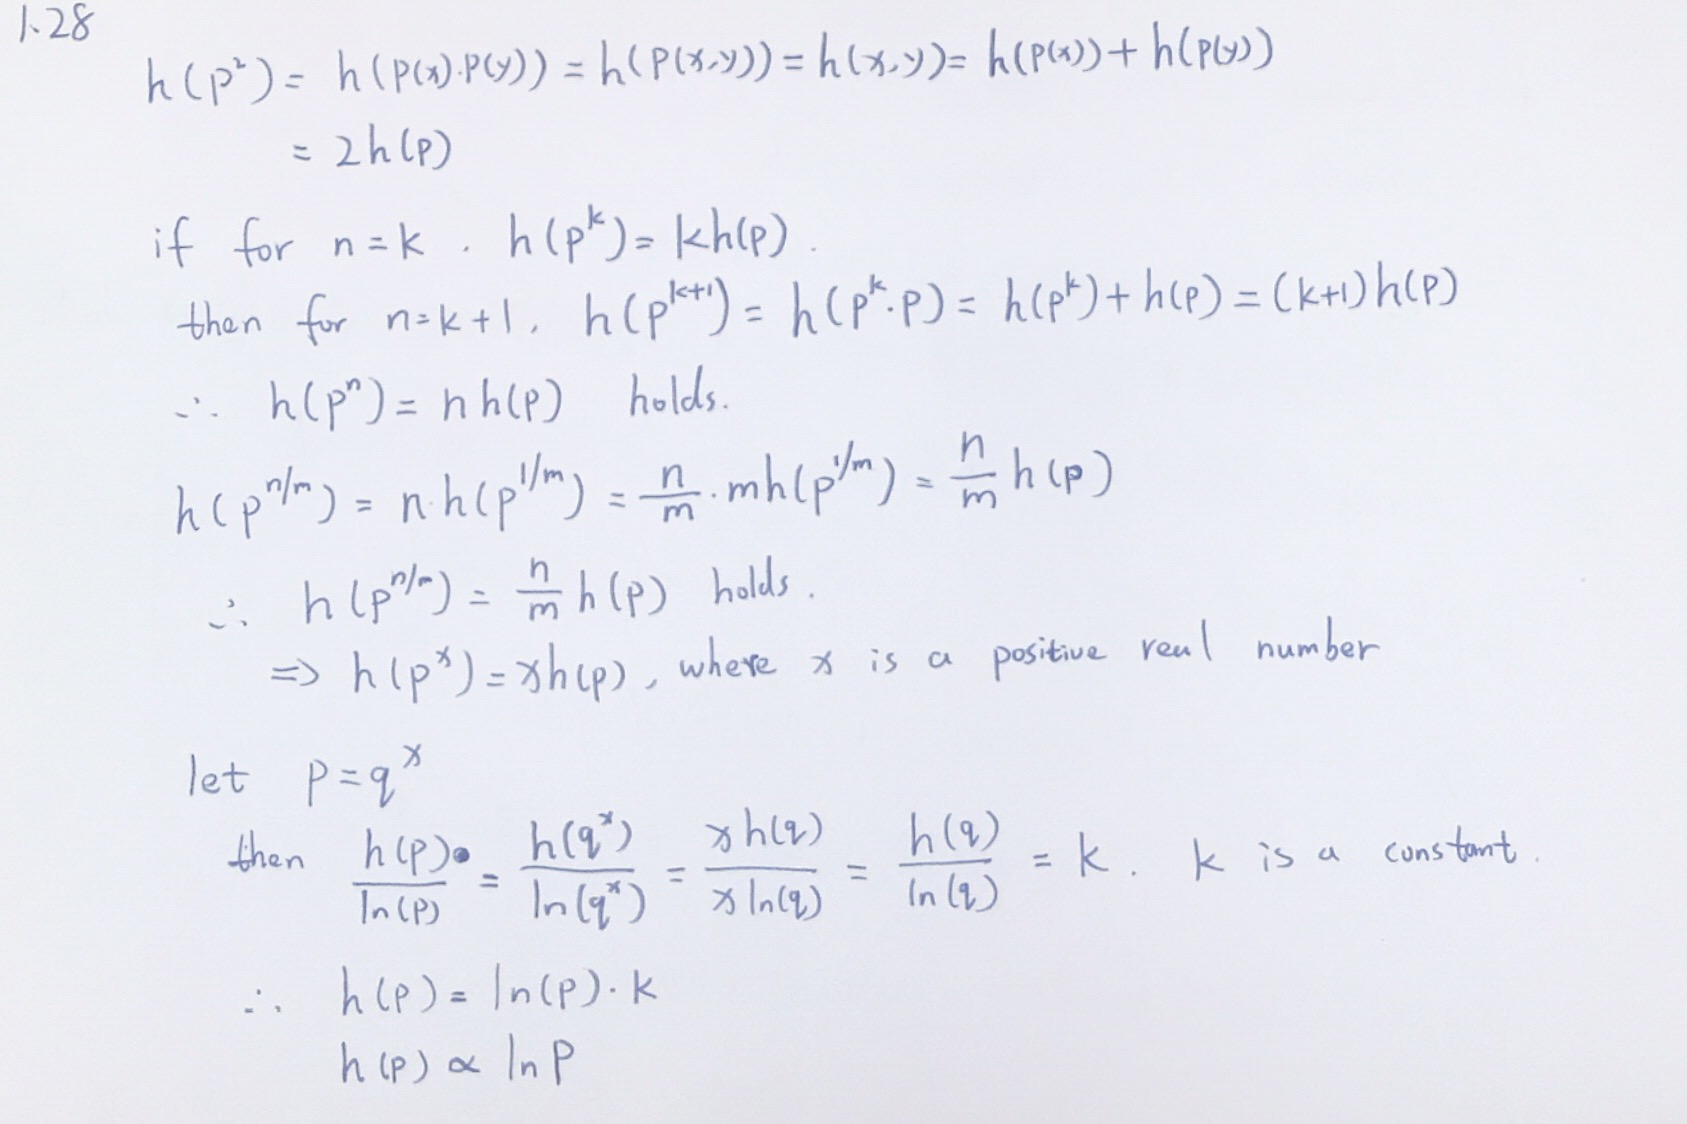 1.28
h(p²) = h(p(x)·p(y)) = h(p(x,y)) = h(x,y) = h(p(x)) + h(p(y))
= 2h(p)
if for n=k . h(p^k) = kh(p) .
then for n=k+1, h(p^{k+1}) = h(p^k·p) = h(p^k) + h(p) = (k+1)h(p)
∴ h(p^n) = n h(p) holds.
h(p^{n/m}) = n·h(p^{1/m}) = n/m · mh(p^{1/m}) = n/m h(p)
∴ h(p^{n/m}) = n/m h(p) holds.
=> h(p^x) = xh(p), where x is a positive real number
let p = q^x
then h(p)/ln(p) = h(q^x)/ln(q^x) = x h(q)/x ln(q) = h(q)/ln(q) = k. k is a constant.
∴ h(p) = ln(p)·k
h(p) ∝ ln p